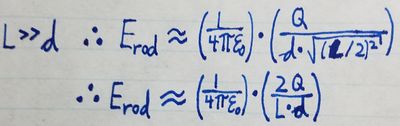 L >> d ∴ E_rod ≈ (1/4πε₀) · (Q / d·√((L/2)²))
∴ E_rod ≈ (1/4πε₀) · (2Q / L·d)